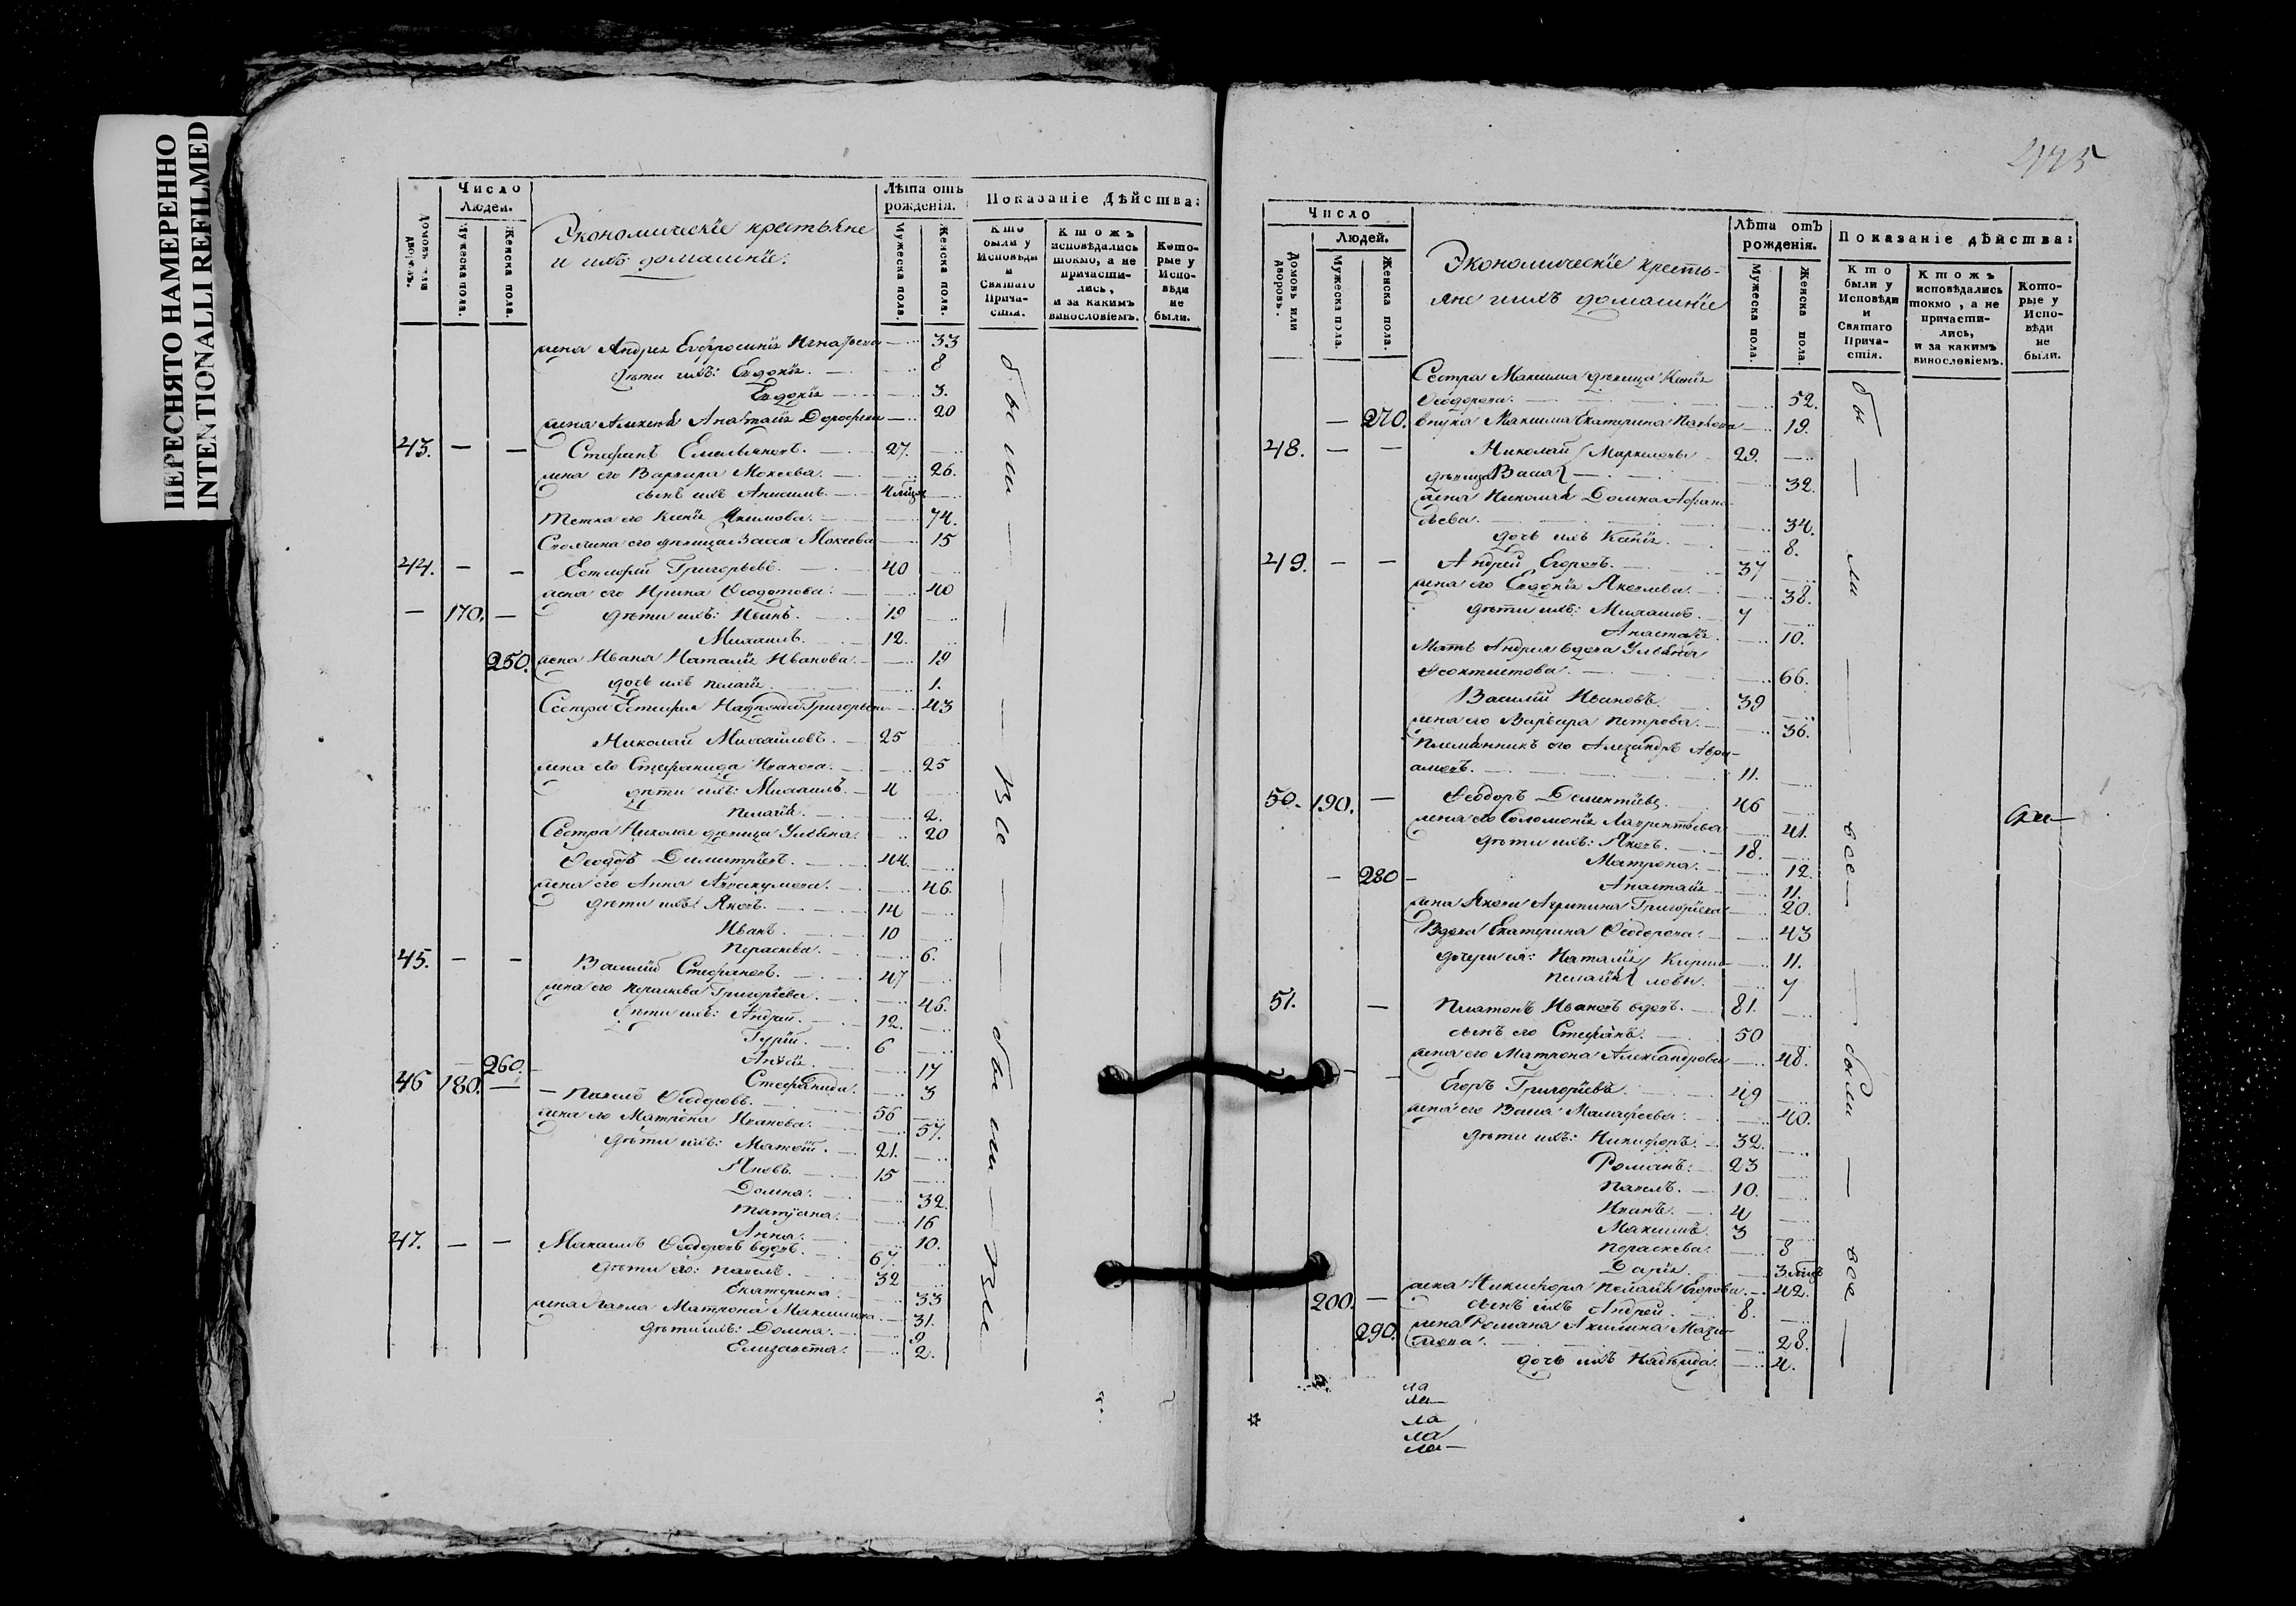 ПЕРЕСНЯТО НАМЕРЕННО
INTENTIONALLI REFILMED
Число
Людей.
Домовъ или дворовъ.
Мужеска пола.
Женска пола.
Экономическіе крестьяне
и ихъ домашніе:
Лѣта отъ
рожденія.
Мужеска пола.
Женска пола.
Показаніе дѣйства:
Кто
были у
Исповѣди
и
Святаго
Прича-
стія.
Ктожъ
исповѣдались
токмо, а не
причасти-
лись,
и за какимъ
винословіемъ.
Кото-
рые у
Испо-
вѣди
не
были.
жена Андрея Евфросинія Игнатьева 33
дѣти ихъ: Евдокія. 8
Евдокія 3.
жена Алексея Анастасія Дорофеева 20
43. — — Стефанъ Емельяновъ. 27.
жена его Варвара Мокеева. 26.
сынъ ихъ Анисимъ. 4 мѣся
Тетка его Ксенія Якимова. 74.
его дѣвица Васса Мокеева 15
44. — — Естифей Григорьевъ. 40
жена его Ирина Ѳеодотова. 40
— 170. — дѣти ихъ: Иванъ. 19
Михаилъ. 12.
250. жена Ивана Наталія Иванова. 19
дочь ихъ Пелагія 1.
Сестра Естифея Григорьева 43
Николай Михайловъ. 25
жена его Стефанида Иванова. 25
дѣти ихъ: Михаилъ. 4
Пелагія. 2.
Сестра Николая дѣвица Ульяна. 20
Ѳеодотъ Димитріевъ. 44.
жена его Анна Аввакумова. 46
дѣти ихъ: Яковъ. 14
Иванъ. 10
Параскева. 6.
45. — — Василій Стефановъ. 47
жена его Параскева Григоріева. 46.
дѣти ихъ: Андрей. 12.
Гурій. 6
260. 17
Стефанида. 3
46 180. — Павелъ Ѳеодоровъ. 56
жена его Матрона Иванова. 57.
дѣти ихъ: Матвей. 21.
Яковъ. 15
Домна. 32.
Татіана. 16
Анна. 10.
47. — — Максимъ Ѳеодоровъ вдовъ. 67.
дѣти его: Павелъ. 32
Екатерина. 33
жена Павла Матрона Максимова. 31.
дѣти ихъ: Домна. 9
Елизавета. 2.
были — — — Все — — были — Все
Число
Людей.
Домовъ или дворовъ.
Мужеска пола.
Женска пола.
Экономическіе кресть-
яне и ихъ домашніе
Лѣта отъ
рожденія.
Мужеска пола.
Женска пола.
Показаніе дѣйства:
Кто
были у
Исповѣди
и
Святаго
Прича-
стія.
Ктожъ
исповѣдались
токмо, а не
причасти-
лись,
и за какимъ
винословіемъ.
Кото-
рые у
Испо-
вѣди
не
были.
Сестра Максима дѣвица Ксенія
Ѳеодорова. 52.
— 270. внука Максима Екатерина Павлова 19.
48. — — Николай Маркеловы 29.
дѣвица Васса 32.
жена Николая Домна Афана-
сьева. 34.
дочь ихъ Ксенія. 8.
49. — — Андрей Егоровъ. 37
жена его Евдокія Яковлева. 38.
дѣти ихъ: Михаилъ. 7
Анастасія. 10.
Мать Андрея вдова Ульяна
Ѳеоктистова. 66.
Василій Ивановъ. 39
жена его Варвара Петрова. 36.
Племянникъ его Александръ Авра-
амовъ. 11.
50. 190. — Ѳеодоръ Дементіевъ 46
жена его Соломонія Лаврентьева 41.
дѣти ихъ: Яковъ. 18.
Матрона. 12.
— 280 — Анастасія 11.
жена Якова Акулина Григоріева 20.
Вдова Екатерина Ѳеодорова. 43
дочери ея: Наталія Кирил- 11.
Пелагія ловы. 7
51. — Платонъ Ивановъ вдовъ. 81.
сынъ его Стефанъ. 50
жена его Матрона Александрова 48.
Егоръ Григоріевъ. 49
жена его Васса Малафеева. 40.
дѣти ихъ: Никифоръ. 32.
Романъ. 23
Павелъ. 10.
Иванъ. 4
Максимъ. 3
Параскева. 8
Дарія. 3 мѣся
жена Никифора Пелагія Егорова. 42.
200. — сынъ ихъ Андрей. 8.
290. жена Романа Акилина Макси-
мова. 28.
дочь ихъ Надежда. 4.
бы — ли — — все — — были — все —